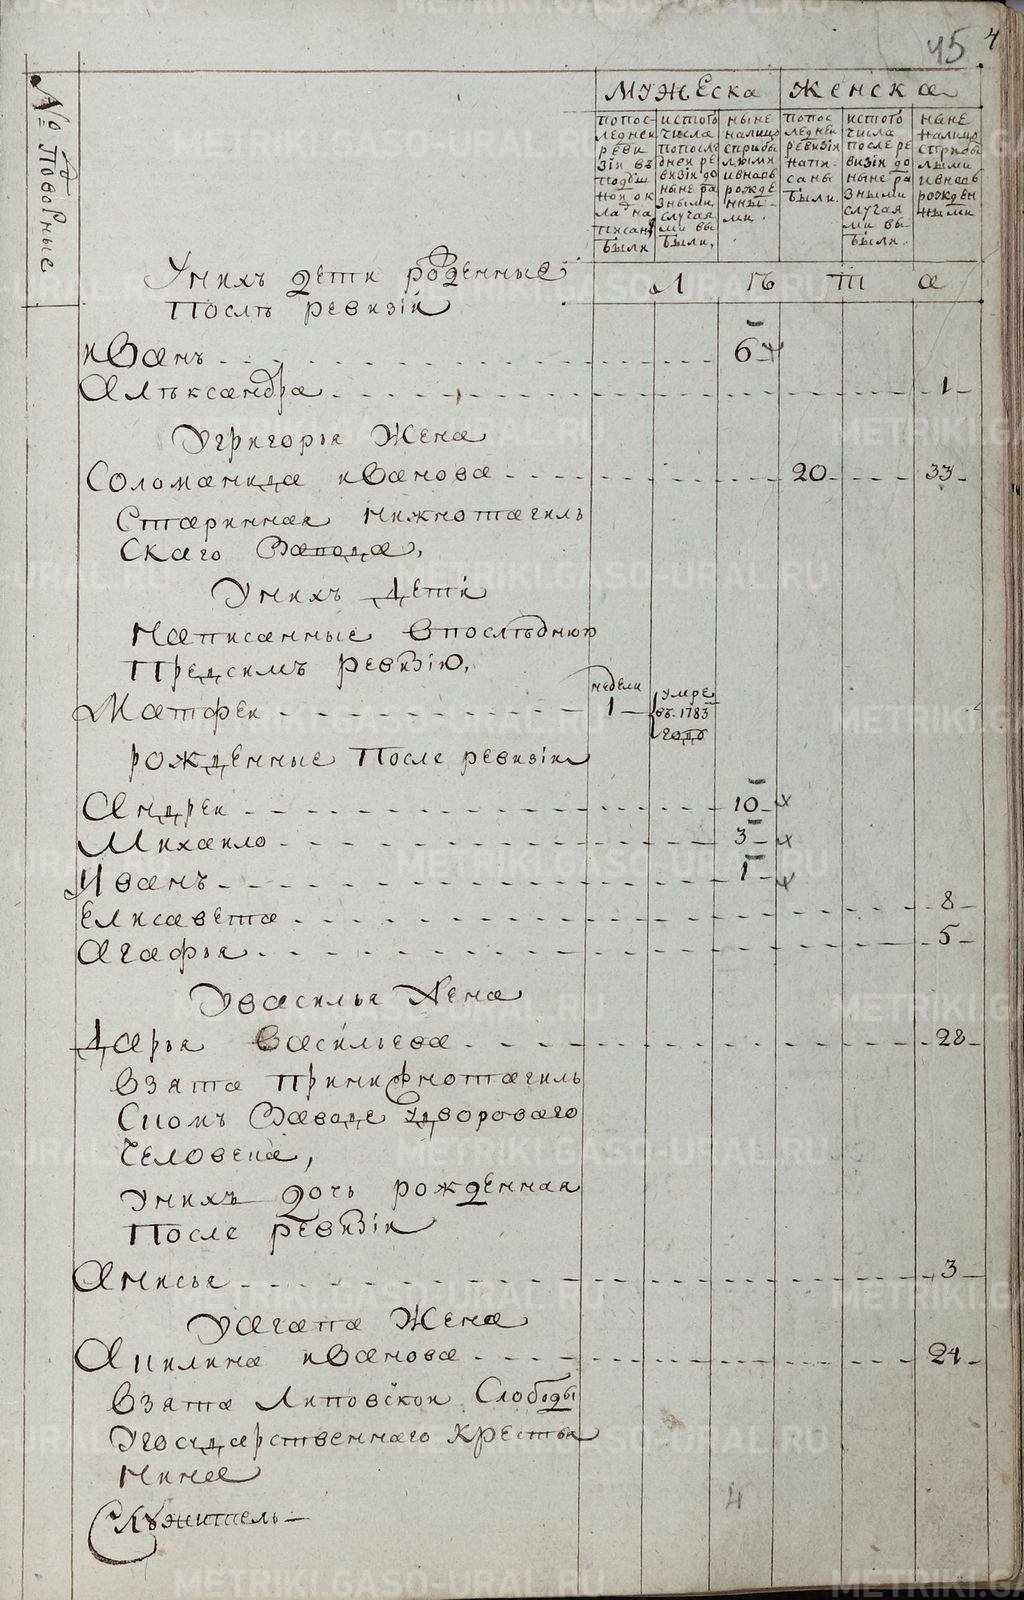 45
4
№ Подворные
Мужеска Женска
попоследней ревизіи въ подушной окладъ написаны были
истого числа попоследней ревизіи до ныне разными случаями выбыли,
ныне налицо сприбылыми ивновь рожденными.
попоследней ревизіи написаны были.
истого числа после ревизіи до ныне разными случаями выбыли.
ныне налицо сприбылыми ивновь рожденными
Л ѣ т а
Унихъ дети роденные
Послѣ ревизіи
иванъ 6
Алѣксандра 1
Угригорья Жена
Соломанида иванова 20 33
Старинная нижнотагиль
Скаго Завода,
Унихъ Дети
Написанные впослѣднюю
Предсимъ ревизію,
недели
Матфеи 1 умре въ 1783 годѣ
рожденные После ревизіи
Андреи 10
Михаило 3
Иванъ 1
Елисавета 8
Агафья 5
Увасилья Жена
Дарья васильева 28
взята принижнотагиль
Скомъ Заводе удвороваго
Человека,
Унихъ дочь рожденная
После ревизіи
Анисья 3
Уагапа Жена
Акилина иванова 24
взята Липовскои Слободы
Угосударственнаго крестья
нина
Служитель
4
METRIKI.GASO-URAL.RU